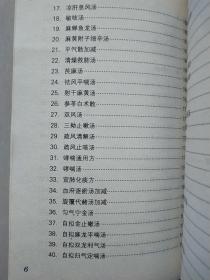 17. 凉肝息风汤
18. 敏咳汤
19. 麻蝉鱼龙汤
20. 麻黄附子细辛汤
21. 平气散加减
22. 清燥救肺汤
23. 芪麻汤
24. 祛风平喘汤
25. 射干麻黄汤
26. 参苓白术散
27. 双风汤
28. 三拗止嗽汤
29. 疏风清解汤
30. 疏风止喘汤
31. 哮喘通用方
32. 哮喘汤
33. 宣肺化痰方
34. 血府逐瘀汤加减
35. 旋覆代赭汤加减
36. 匀气宁金汤
37. 自拟金止嗽汤
38. 自拟麻龙平喘汤
39. 自拟双龙利气汤
40. 自拟归气定喘汤
6